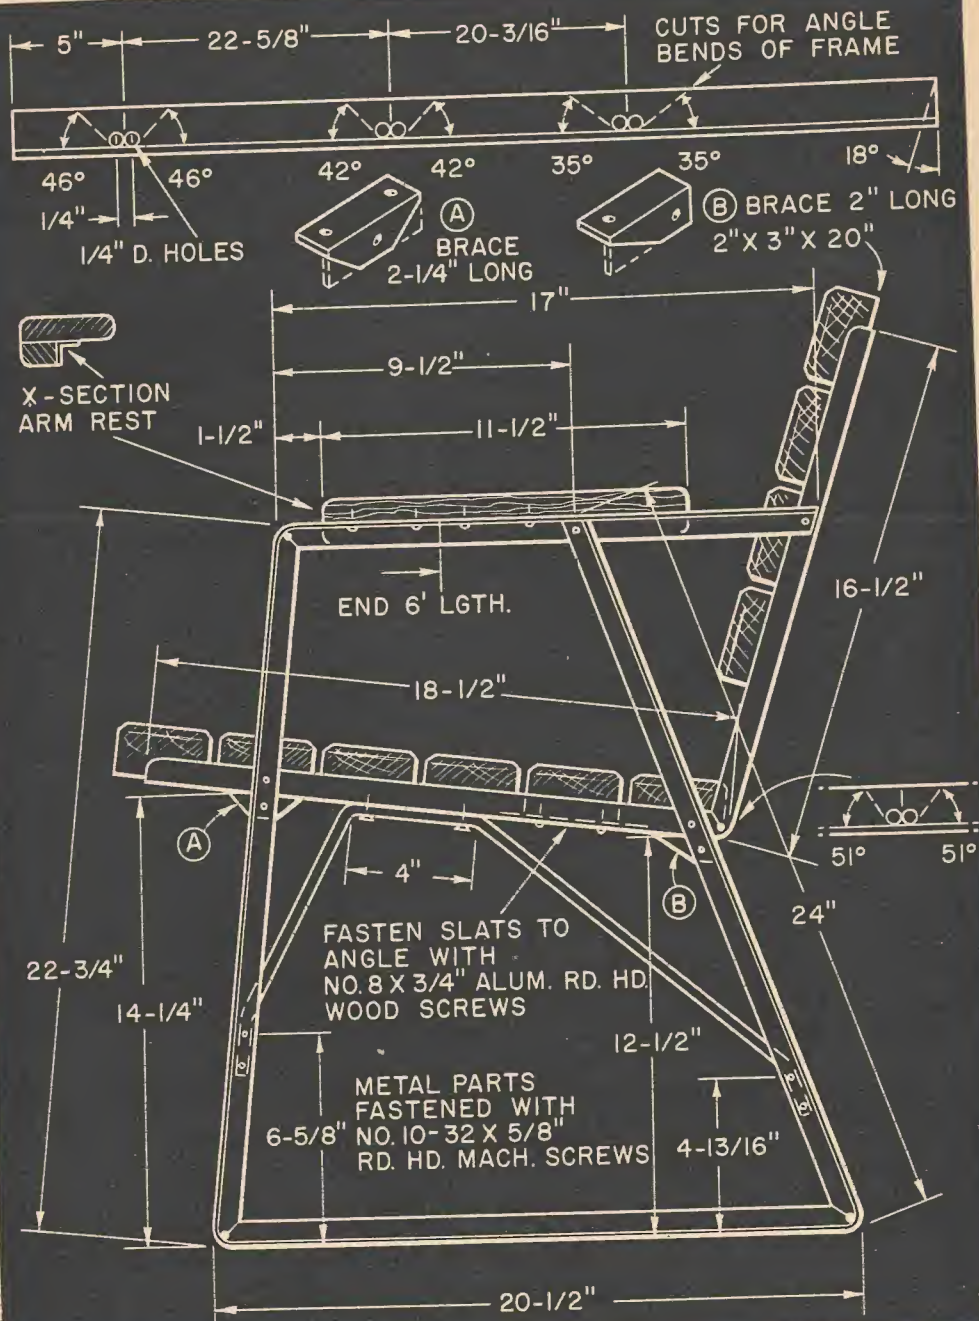 5"
22-5/8"
20-3/16"
CUTS FOR ANGLE
BENDS OF FRAME
46°
46°
42°
42°
35°
35°
18°
1/4"
1/4" D. HOLES
A
BRACE
2-1/4" LONG
B BRACE 2" LONG
2" X 3" X 20"
17"
9-1/2"
X-SECTION
ARM REST
1-1/2"
11-1/2"
END 6' LGTH.
16-1/2"
18-1/2"
A
4"
B
51°
51°
24"
FASTEN SLATS TO
ANGLE WITH
NO. 8 X 3/4" ALUM. RD. HD.
WOOD SCREWS
22-3/4"
14-1/4"
12-1/2"
METAL PARTS
FASTENED WITH
NO. 10-32 X 5/8"
RD. HD. MACH. SCREWS
6-5/8"
4-13/16"
20-1/2"